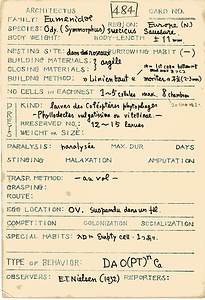 ARCHITECTUS 484 CARD NO.
FAMILY: Eumenidae REGION: Europe (N.)
SPECIES: Ody. (Symmorphus) suecicus Saussure
BODY WEIGHT: BODY-LENGTH: ± 11 mm
NESTING SITE: dans des roseaux BURROWING HABIT (-)
BUILDING MATERIALS: } argile
CLOSING MATERIALS:
BUILDING METHOD:
NO. CELLS IN EACH NEST: 1~5 cellules max. 8 chambres
PREY KIND: larves des Coléoptères phytophages
-Phyllodecta vulgatissima ou vitellinae-
PRESERVED NO.: 12~15 larves
PREY WEIGHT OR SIZE:
PARALYSIS: paralysée MAX. DUR. DAYS
STINGING MALAXATION AMPUTATION
TRASP. METHOD: - au vol -
GRASPING:
ROUTE:
EGG LOCATION: OV. suspendu dans un fil.
COMPETITION COLONIZATION SOCIALIZATION
SPECIAL HABITS: Empty cell
TYPE OF BEHAVIOR:
OBSERVERS: E.T. Nielsen (1932) REPORTERS: